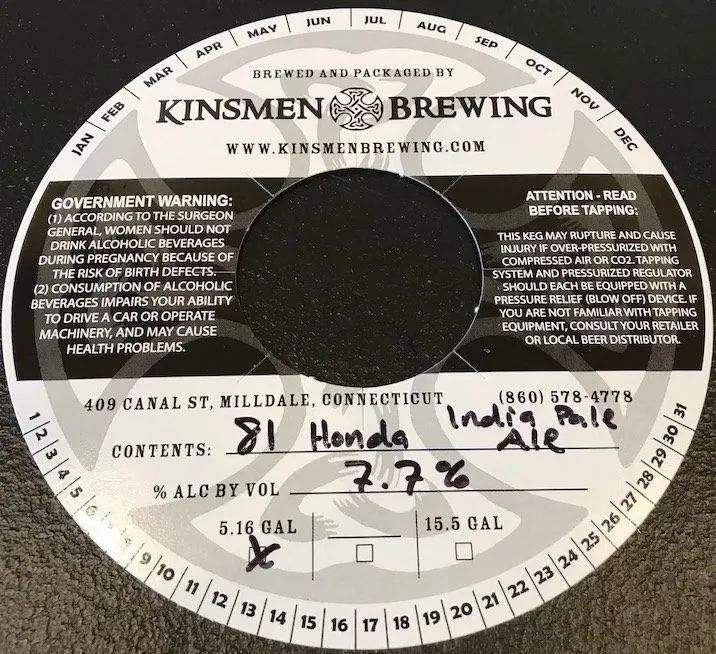 JAN FEB MAR APR MAY JUN JUL AUG SEP OCT NOV DEC
BREWED AND PACKAGED BY
KINSMEN BREWING
WWW.KINSMENBREWING.COM
GOVERNMENT WARNING:
(1) ACCORDING TO THE SURGEON
GENERAL, WOMEN SHOULD NOT
DRINK ALCOHOLIC BEVERAGES
DURING PREGNANCY BECAUSE OF
THE RISK OF BIRTH DEFECTS.
(2) CONSUMPTION OF ALCOHOLIC
BEVERAGES IMPAIRS YOUR ABILITY
TO DRIVE A CAR OR OPERATE
MACHINERY, AND MAY CAUSE
HEALTH PROBLEMS.
ATTENTION - READ
BEFORE TAPPING:
THIS KEG MAY RUPTURE AND CAUSE
INJURY IF OVER-PRESSURIZED WITH
COMPRESSED AIR OR CO2. TAPPING
SYSTEM AND PRESSURIZED REGULATOR
SHOULD EACH BE EQUIPPED WITH A
PRESSURE RELIEF (BLOW OFF) DEVICE. IF
YOU ARE NOT FAMILIAR WITH TAPPING
EQUIPMENT, CONSULT YOUR RETAILER
OR LOCAL BEER DISTRIBUTOR.
409 CANAL ST, MILLDALE, CONNECTICUT (860) 578-4778
CONTENTS: 81 Honda India Pale
Ale
% ALC BY VOL 7.7%
5.16 GAL 15.5 GAL
X
1 2 3 4 5 6 7 8 9 10 11 12 13 14 15 16 17 18 19 20 21 22 23 24 25 26 27 28 29 30 31